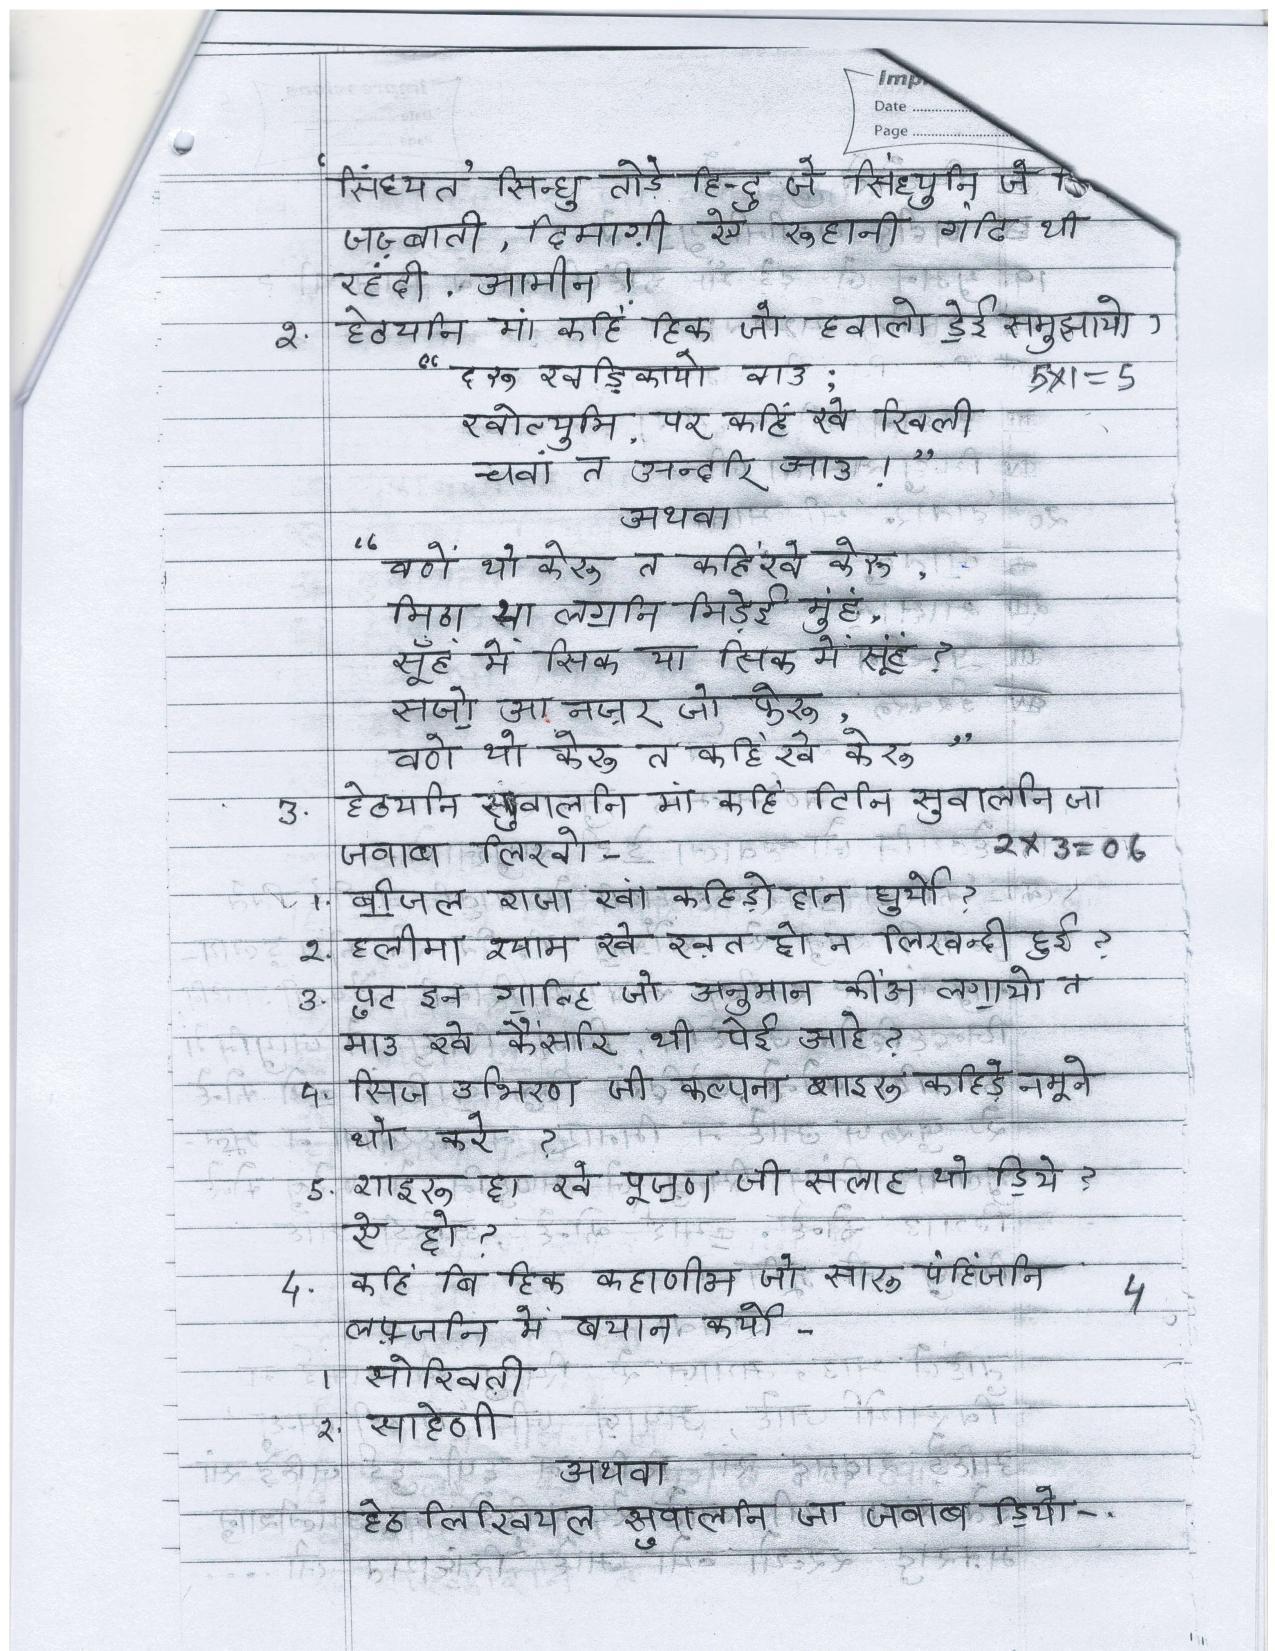 Date
Page
'सिंध्यत' सिन्धु तोड़े हिन्दु जे सिंध्युनि जे
जज़्बाती, दिमाग़ी ऐं रूहानी गंढि थी
रहंदी. आमीन !
२. हेठयनि मां कहिं हिक जो हवालो ॾेई समुझायो,
"दरु खड़िकायो वाउ ; 5x1=5
खोल्युमि, पर कहिं खे खिली
चवां त अन्दरि आउ !"
अथवा
"वणें थो केरु त कहिंखे केरु,
मिठा था लॻनि मिड़ेई मुंहं,
सूँहं में सिक या सिक में सूंहं ?
सॼो आ नज़र जो फेरु,
वणे थो केरु त कहिंखे केरु"
3. हेठयनि सुवालनि मां कहिं टिनि सुवालनि जा
जवाब लिखो- 2x3=06
1. ॿीजल राजा खां कहिड़ो दान घुर्यो ?
२. हलीमा श्याम खे ख़त छो न लिखन्दी हुई ?
3. पुट इन ॻाल्हि जो अनुमान कीअं लॻायो त
माउ खे कैंसरि थी पेई आहे ?
4. सिज उभिरण जी कल्पना शाइरु कहिड़े नमूने
थो करे ?
5. शाइरु छा खे पूॼण जी सलाह थो ॾिये ?
ऐं छो ?
4. कहिं बि हिक कहाणीअ जो सारु पंहिंजनि 4
लफ़्ज़नि में बयान कर्यो-
1 सोखिती
२. साहेणी
अथवा
हेठ लिखियल सुवालनि जा जवाब ॾियो-.